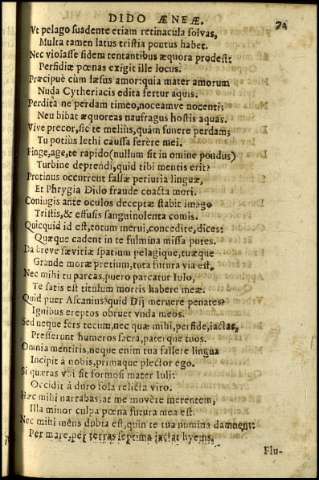 DIDO ÆNEÆ. 74
Vt pelago suadente etiam retinacula soluas,
Multa tamen latus tristia pontus habet.
Nec violasse fidem tentantibus æquora prodest:
Perfidiæ pœnas exigit ille locus.
Præcipuè cùm læsus amor: quia mater amorum
Nuda Cytheriacis edita fertur aquis.
Perdita ne perdam timeo, noceamve nocenti:
Neu bibat æquoreas naufragus hostis aquas.
Viue precor, sic te meliùs, quàm funere perdam;
Tu potiùs lethi caussa ferêre mei.
Finge, age, te rapido (nullum sit in omine pondus)
Turbine deprendi, quid tibi mentis erit?
Protinus occurrent falsæ periuria linguæ,
Et Phrygia Dido fraude coacta mori.
Coniugis ante oculos deceptæ stabit imago
Tristis, & effusis sanguinolenta comis.
Quicquid id est, totum merui, concedite, dices:
Quæque cadent in te fulmina missa putes.
Da breve sævitiæ spatium pelagique, tuæque
Grande moræ pretium, tuta futura via est.
Nec mihi tu parcas, puero parcatur Iulo,
Te satis est titulum mortis habere meæ.
Quid puer Ascanius? quid Dij meruere penates?
Ignibus ereptos obruet vnda meos.
Sed neque fers tecum, nec quæ mihi, perfide, iactas,
Presserunt humeros sacra, paterque tuos.
Omnia mentiris, neque enim tua fallere lingua
Incipit à nobis, primaque plector ego.
Si quæras vbi sit formosi mater Iuli:
Occidit à duro sola relicta viro.
Hæc mihi narrabas: at me movêre merentem,
Illa minor culpa pœna futura mea est.
Nec mihi mens dubia est, quin te tua numina damnent:
Per mare, per terras septima iactat hyems,
Flu-